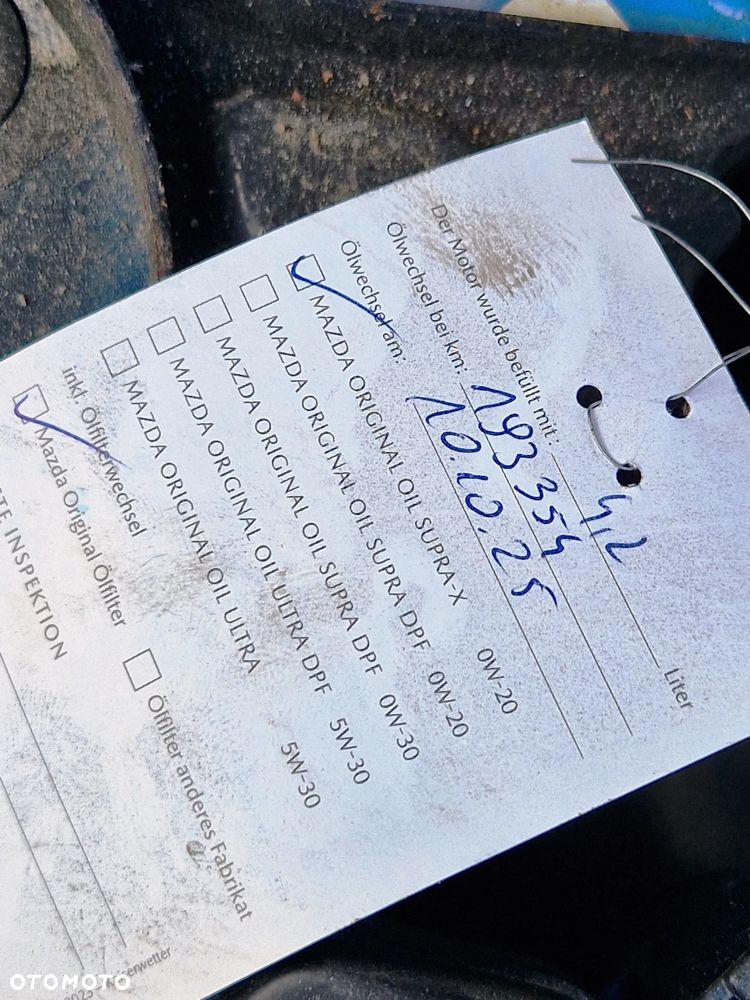 Der Motor wurde befüllt mit: 4,2 Liter
Ölwechsel bei km: 193 354
Ölwechsel am: 10.10.25
MAZDA ORIGINAL OIL SUPRA-X 0W-20
MAZDA ORIGINAL OIL SUPRA DPF 0W-20
MAZDA ORIGINAL OIL SUPRA DPF 0W-30
MAZDA ORIGINAL OIL ULTRA DPF 5W-30
MAZDA ORIGINAL OIL ULTRA 5W-30
inkl. Ölfilterwechsel
Mazda Original Ölfilter Ölfilter anderes Fabrikat
INSPEKTION
OTOMOTO